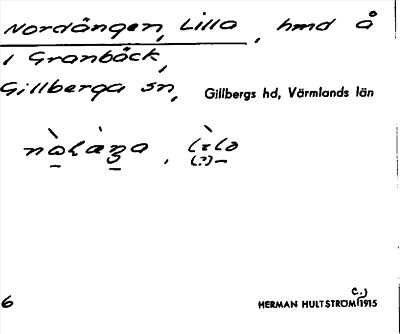 Nordängen, Lilla, hmd å
i Granbäck,
Gillberga sn, Gillbergs hd, Värmlands län
6 HERMAN HULTSTRÖM 1915